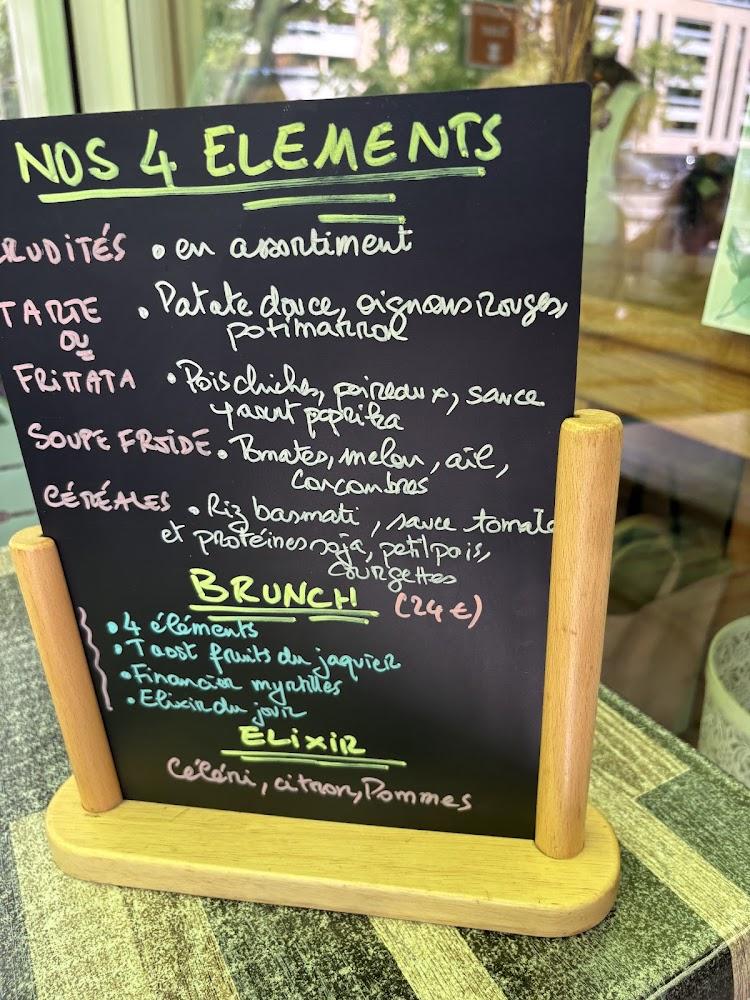 NOS 4 ELEMENTS
CRUDITÉS • en assortiment
TARTE • Patate douce, oignons rouges,
OU potimarron
FRITTATA • Pois chiches, poireaux, sauce
yaourt paprika
SOUPE FROIDE • Tomates, melon, ail,
concombres
CÉRÉALES • Riz basmati, sauce tomate
et protéines soja, petit pois,
courgettes
BRUNCH (24 €)
• 4 éléments
• Toast fruits du jaquier
• Financier myrtilles
• Elixir du jour
ELIXIR
Céléri, citron, Pommes